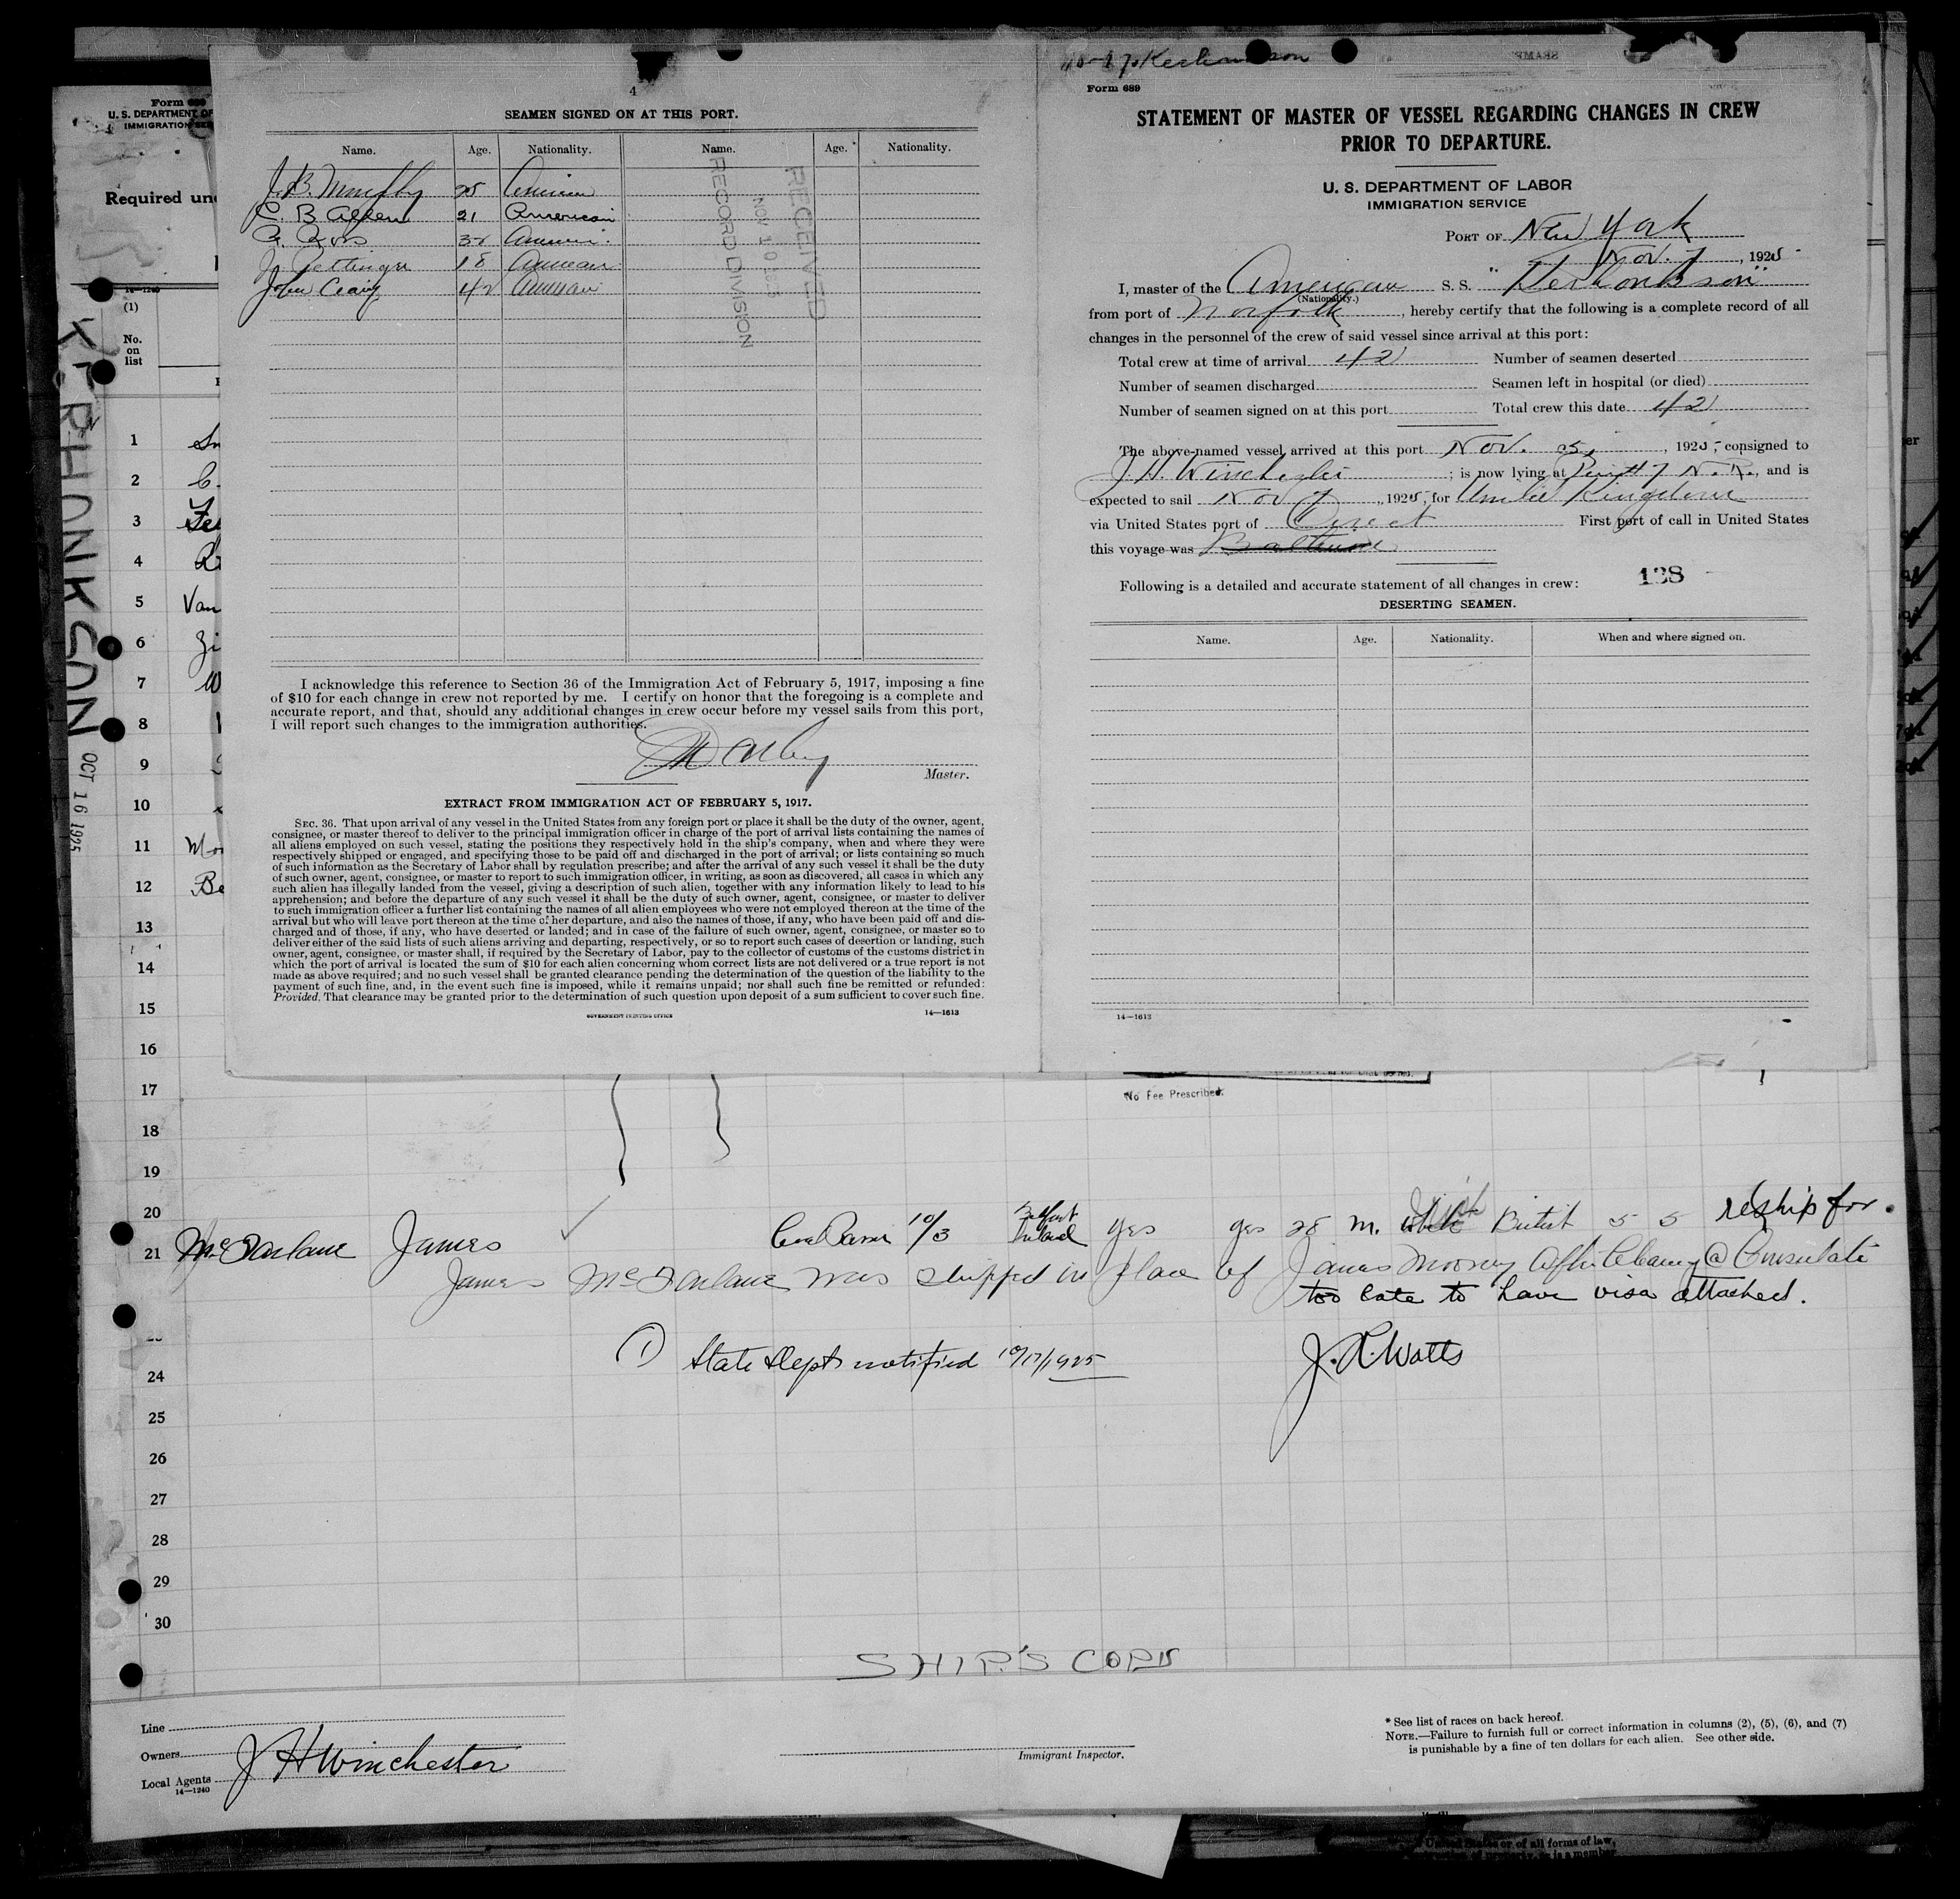 4
SEAMEN SIGNED ON AT THIS PORT.
Name. Age. Nationality. Name. Age. Nationality.
J. B. Murphy 25 American
C. B. Allen 21 American
32
18 American
John Craig 42 American
RECEIVED
NOV 10 1925
RECORD DIVISION
I acknowledge this reference to Section 36 of the Immigration Act of February 5, 1917, imposing a fine
of $10 for each change in crew not reported by me. I certify on honor that the foregoing is a complete and
accurate report, and that, should any additional changes in crew occur before my vessel sails from this port,
I will report such changes to the immigration authorities.
Master.
EXTRACT FROM IMMIGRATION ACT OF FEBRUARY 5, 1917.
SEC. 36. That upon arrival of any vessel in the United States from any foreign port or place it shall be the duty of the owner, agent,
consignee, or master thereof to deliver to the principal immigration officer in charge of the port of arrival lists containing the names of
all aliens employed on such vessel, stating the positions they respectively hold in the ship's company, when and where they were
respectively shipped or engaged, and specifying those to be paid off and discharged in the port of arrival; or lists containing so much
of such information as the Secretary of Labor shall by regulation prescribe; and after the arrival of any such vessel it shall be the duty
of such owner, agent, consignee, or master to report to such immigration officer, in writing, as soon as discovered, all cases in which any
such alien has illegally landed from the vessel, giving a description of such alien, together with any information likely to lead to his
apprehension; and before the departure of any such vessel it shall be the duty of such owner, agent, consignee, or master to deliver
to such immigration officer a further list containing the names of all alien employees who were not employed thereon at the time of the
arrival but who will leave port thereon at the time of her departure, and also the names of those, if any, who have been paid off and dis-
charged and of those, if any, who have deserted or landed; and in case of the failure of such owner, agent, consignee, or master so to
deliver either of the said lists of such aliens arriving and departing, respectively, or so to report such cases of desertion or landing, such
owner, agent, consignee, or master shall, if required by the Secretary of Labor, pay to the collector of customs of the customs district in
which the port of arrival is located the sum of $10 for each alien concerning whom correct lists are not delivered or a true report is not
made as above required; and no such vessel shall be granted clearance pending the determination of the question of the liability to the
payment of such fine, and, in the event such fine is imposed, while it remains unpaid; nor shall such fine be remitted or refunded:
Provided, That clearance may be granted prior to the determination of such question upon deposit of a sum sufficient to cover such fine.
GOVERNMENT PRINTING OFFICE 14—1613
Form 689
STATEMENT OF MASTER OF VESSEL REGARDING CHANGES IN CREW
PRIOR TO DEPARTURE.
U. S. DEPARTMENT OF LABOR
IMMIGRATION SERVICE
PORT OF New York
Nov. 7, 1925
I, master of the American S. S. "Kerhonkson"
(Nationality.)
from port of Norfolk, hereby certify that the following is a complete record of all
changes in the personnel of the crew of said vessel since arrival at this port:
Total crew at time of arrival 42 Number of seamen deserted
Number of seamen discharged Seamen left in hospital (or died)
Number of seamen signed on at this port Total crew this date 42
The above-named vessel arrived at this port Nov. 5, 1925, consigned to
J. H. Winchester; is now lying at Pier # 7 N. R., and is
expected to sail Nov 7, 1925, for United Kingdom
via United States port of Direct First port of call in United States
this voyage was Baltimore
Following is a detailed and accurate statement of all changes in crew: 138
DESERTING SEAMEN.
Name. Age. Nationality. When and where signed on.
14—1613
Form 689
U. S. DEPARTMENT OF
IMMIGRATION SER
Required und
14—1240
(1)
No.
on
list
KERHONKSON OCT 16 1925
1
2 C.
3
4
5 Van
6 Zi
7 W
8
9
10
11 Mo
12 Be
13
14
15
16
17
No Fee Prescribed.
18
19
20
21 McFarlane James 10/3 Belfast Ireland yes yes 28 M. Irish British 5 5 reship for.
James McFarlane was shipped in place of James Mooney @ Consulate
too late to have visa attached.
① State Dept notified 10/17/1925
J. R. Watts
24
25
26
27
28
29
30
SHIP'S COPY
Line
Owners
Local Agents J H Winchester
14—1240
Immigrant Inspector.
* See list of races on back hereof.
NOTE.—Failure to furnish full or correct information in columns (2), (5), (6), and (7)
is punishable by a fine of ten dollars for each alien. See other side.
United States or of all forms of law,